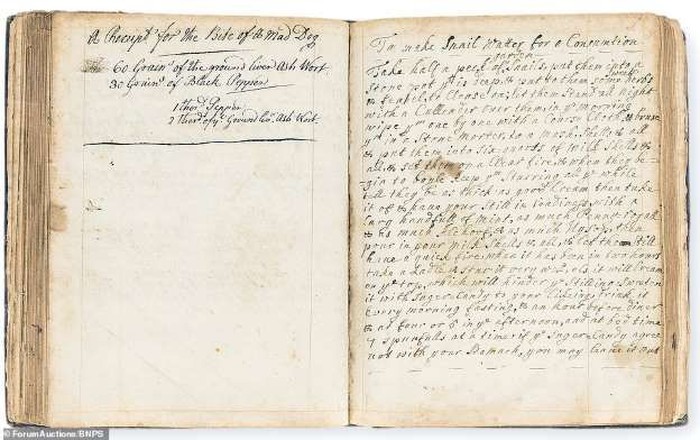 A Receipt for the Bite of a Mad Dog
60 Grains of the ground liver Ash Wort
30 Grains of Black Pepper
1 third Pepper
2 thirds of ye Ground liv. Ash Wort
To make Snail Watter for a Consumtion
garden
Take half a peck of snails, put them into a
Stone pot yt is deap & put to them some
& to close on, let them Stand all night
with a Cullender over them in ye morning
wipe ym one by one with a Course Cloth, & bruse
ym in a Stone Morter, to a mash, Shells & all
& put them into Six quarts of Milk Shells &
all, set them on a Clear fire, & when they be-
gin to boyle keep ym Starring all ye while
till they be as thick as good Cream then take
it of & have your Still in readings with a
Larg handfull of Mint, as much Pennoroyall
& as much, & as much Hysop, then
pour in your Milk Shells & all, & let them Still
have a quick fire, when it has bin in two hours
take a Ladle & Star it very well, els it will Cream
on ye top, which will hinder ye Stilling, Sweeten
it with Suger Candy to your likeing, drink it
Every morning fasting, & an hour before diner
& at four or 5 in ye afternoon, and at bed time
7 spunfulls at a time if ye Suger Candy agree
not with your Stomach, you may leave it out
© ForumAuctions/BNPS